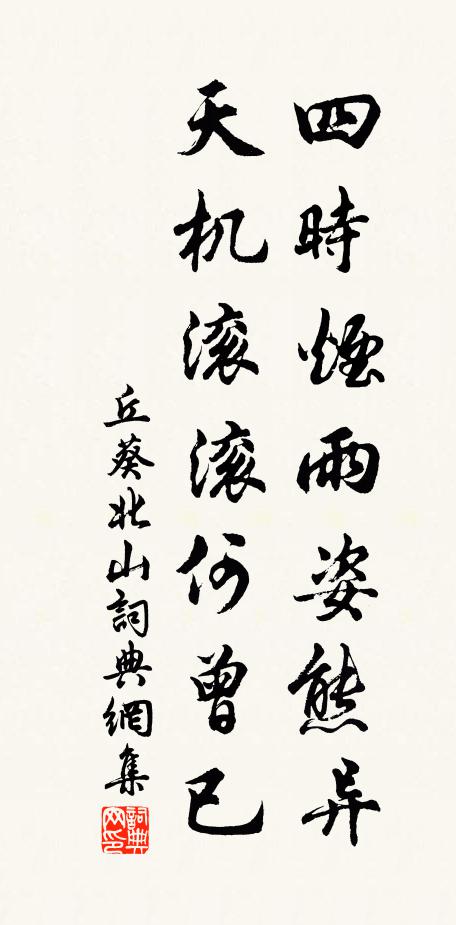 四時煙雨姿態异
天机滚滚何曾已
丘葵北山詞典網集
詞典
网印